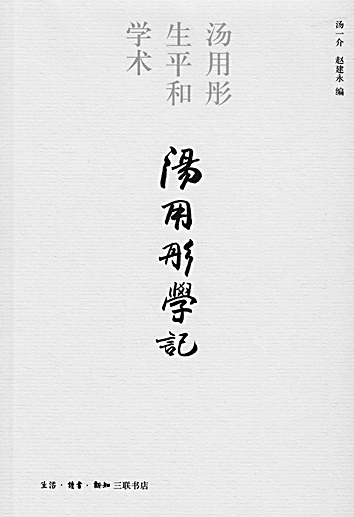 汤一介 赵建永 编
汤用彤
生平和
学术
湯用彤學記
生活·讀書·新知三联书店